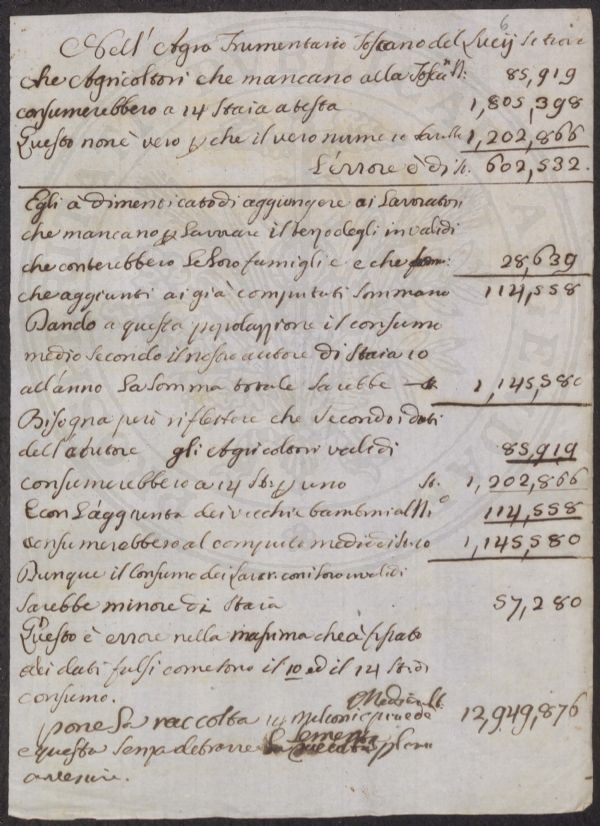 6
Nell' Agro Frumentario Toscano del Lucij si trova
che Agricoltori che mancano alla Tosca.ª N: 85,919
consumerebbero a 14 Staia a testa 1,805,398
Questo non è vero p che il vero numero 1,202,866
L'errore è di St. 602,532.
Egli à dimenticato di aggiungere ai Lavoratori
che mancano p Lavorare il terzo degli invalidi
che conterebbero Le Loro famiglie e che 28,639
che aggiunti ai già computati sommano 114,558
Dando a questa popolazione il consumo
medio secondo il nostro autore di Staia 10
all'anno La Somma totale sarebbe 1,145,580
Bisogna però riflettere che secondo i dati
dell'autore gli Agricoltori validi 85,919
consumerebbero a 14 St: p uno St. 1,202,866
E con L'aggiunta dei vecchi e bambini al N.º 114,558
consumerebbero al computo medio di St. 10 1,145,580
Dunque il Consumo dei Lavor. con i loro invalidi
sarebbe minore di Staia 57,280
Questo è errore nella massima che à fissato
dei dati falsi come sono il 10 ed il 14 St: di
consumo.
pone La raccolta 12,949,876
e questa senza detrarre sementa
avvenire.